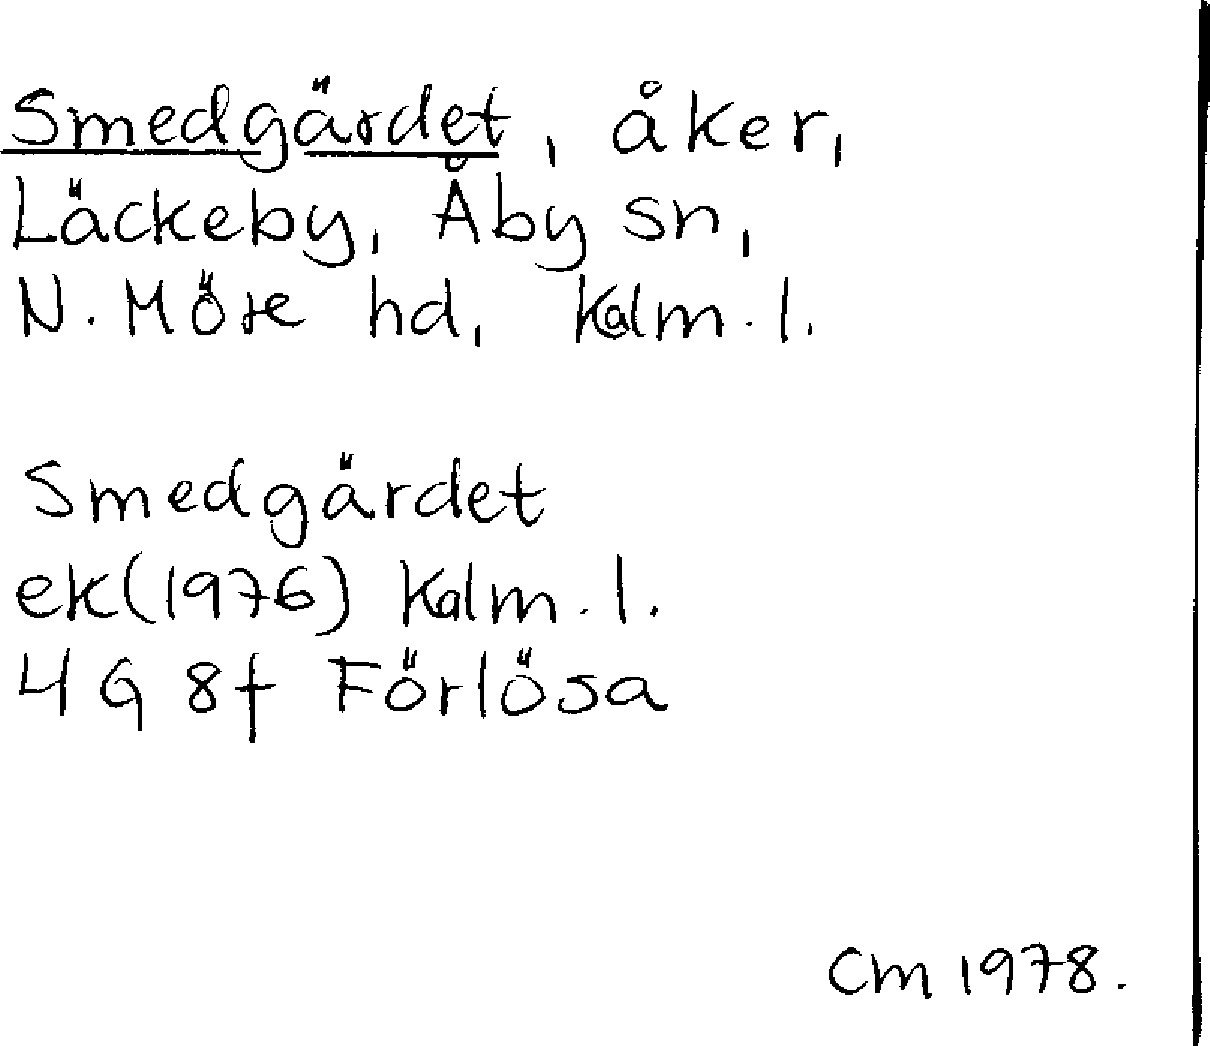 Smedgärdet, åker,
Läckeby, Åby sn,
N. Möre hd, Kalm. l.
Smedgärdet
ek(1976) Kalm. l.
4G 8f Förlösa
Cm 1978.